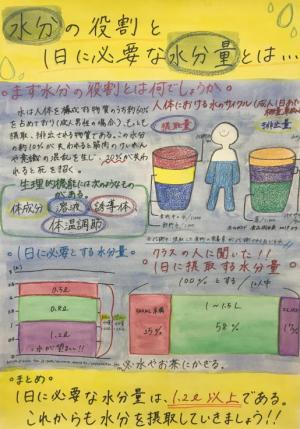 水分の役割と
1日に必要な水分量とは…
まず水分の役割とは何でしょうか
水は人体を構成する物質のうち約60%
を占めており(成人男性の場合)、
摂取、排出される物質である。この水分
の約10%が失われると筋肉のけいれん
や意識の混乱を生じ、20%が失わ
れると死を招く。
生理的機能には次のようなもの
がある。
体成分 溶液 誘導体
体温調節
人体における水のサイクル(成人1日
摂取量
排出量
1日に必要とする水分量
0.5L
0.8L
1.2L
水が望ましい!!
クラスの人に聞いた!!
1日に摂取する水分量
100%とする
35%
1〜1.5L
58%
※水やお茶にかぎる。
まとめ
1日に必要な水分量は、1.2L以上である。
これからも水分を摂取していきましょう!!